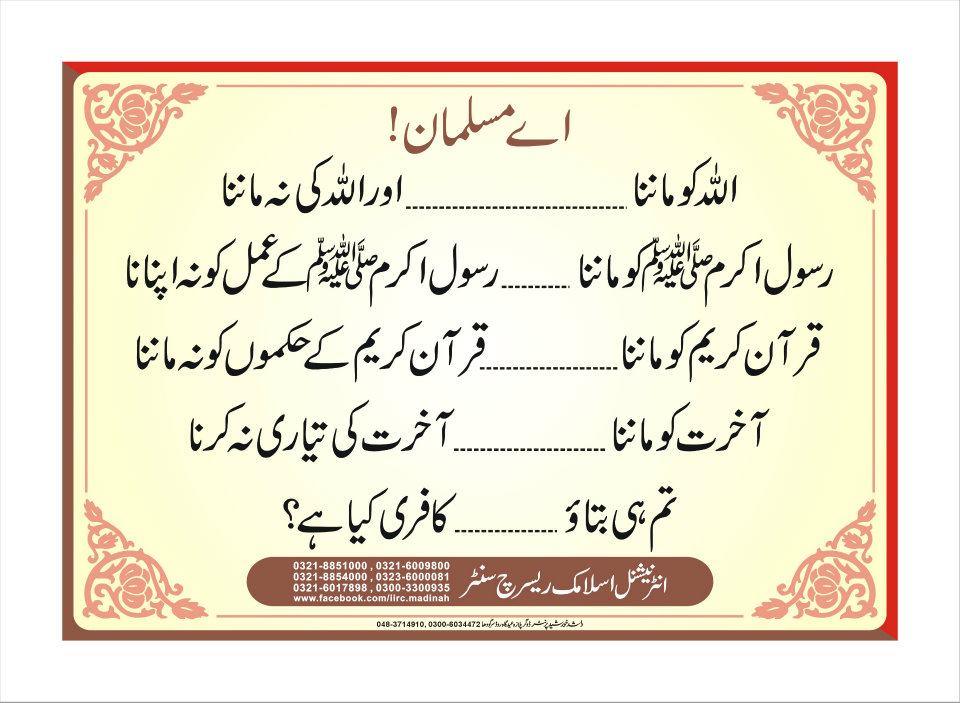 اے مسلمان!
اللہ کو ماننا ........................ اور اللہ کی نہ ماننا
رسول اکرم ﷺ کو ماننا .......... رسول اکرم ﷺ کے عمل کو نہ اپنانا
قرآن کریم کو ماننا .................... قرآن کریم کے حکموں کو نہ ماننا
آخرت کو ماننا ...................... آخرت کی تیاری نہ کرنا
تم ہی بتاؤ ............... کافری کیا ہے؟
انٹرنیشنل اسلامک ریسرچ سنٹر
0321-8851000 , 0321-6009800
0321-8854000 , 0323-6000081
0321-6017898 , 0300-3300935
www.facebook.com/iirc.madinah
048-3714910, 0300-6034472